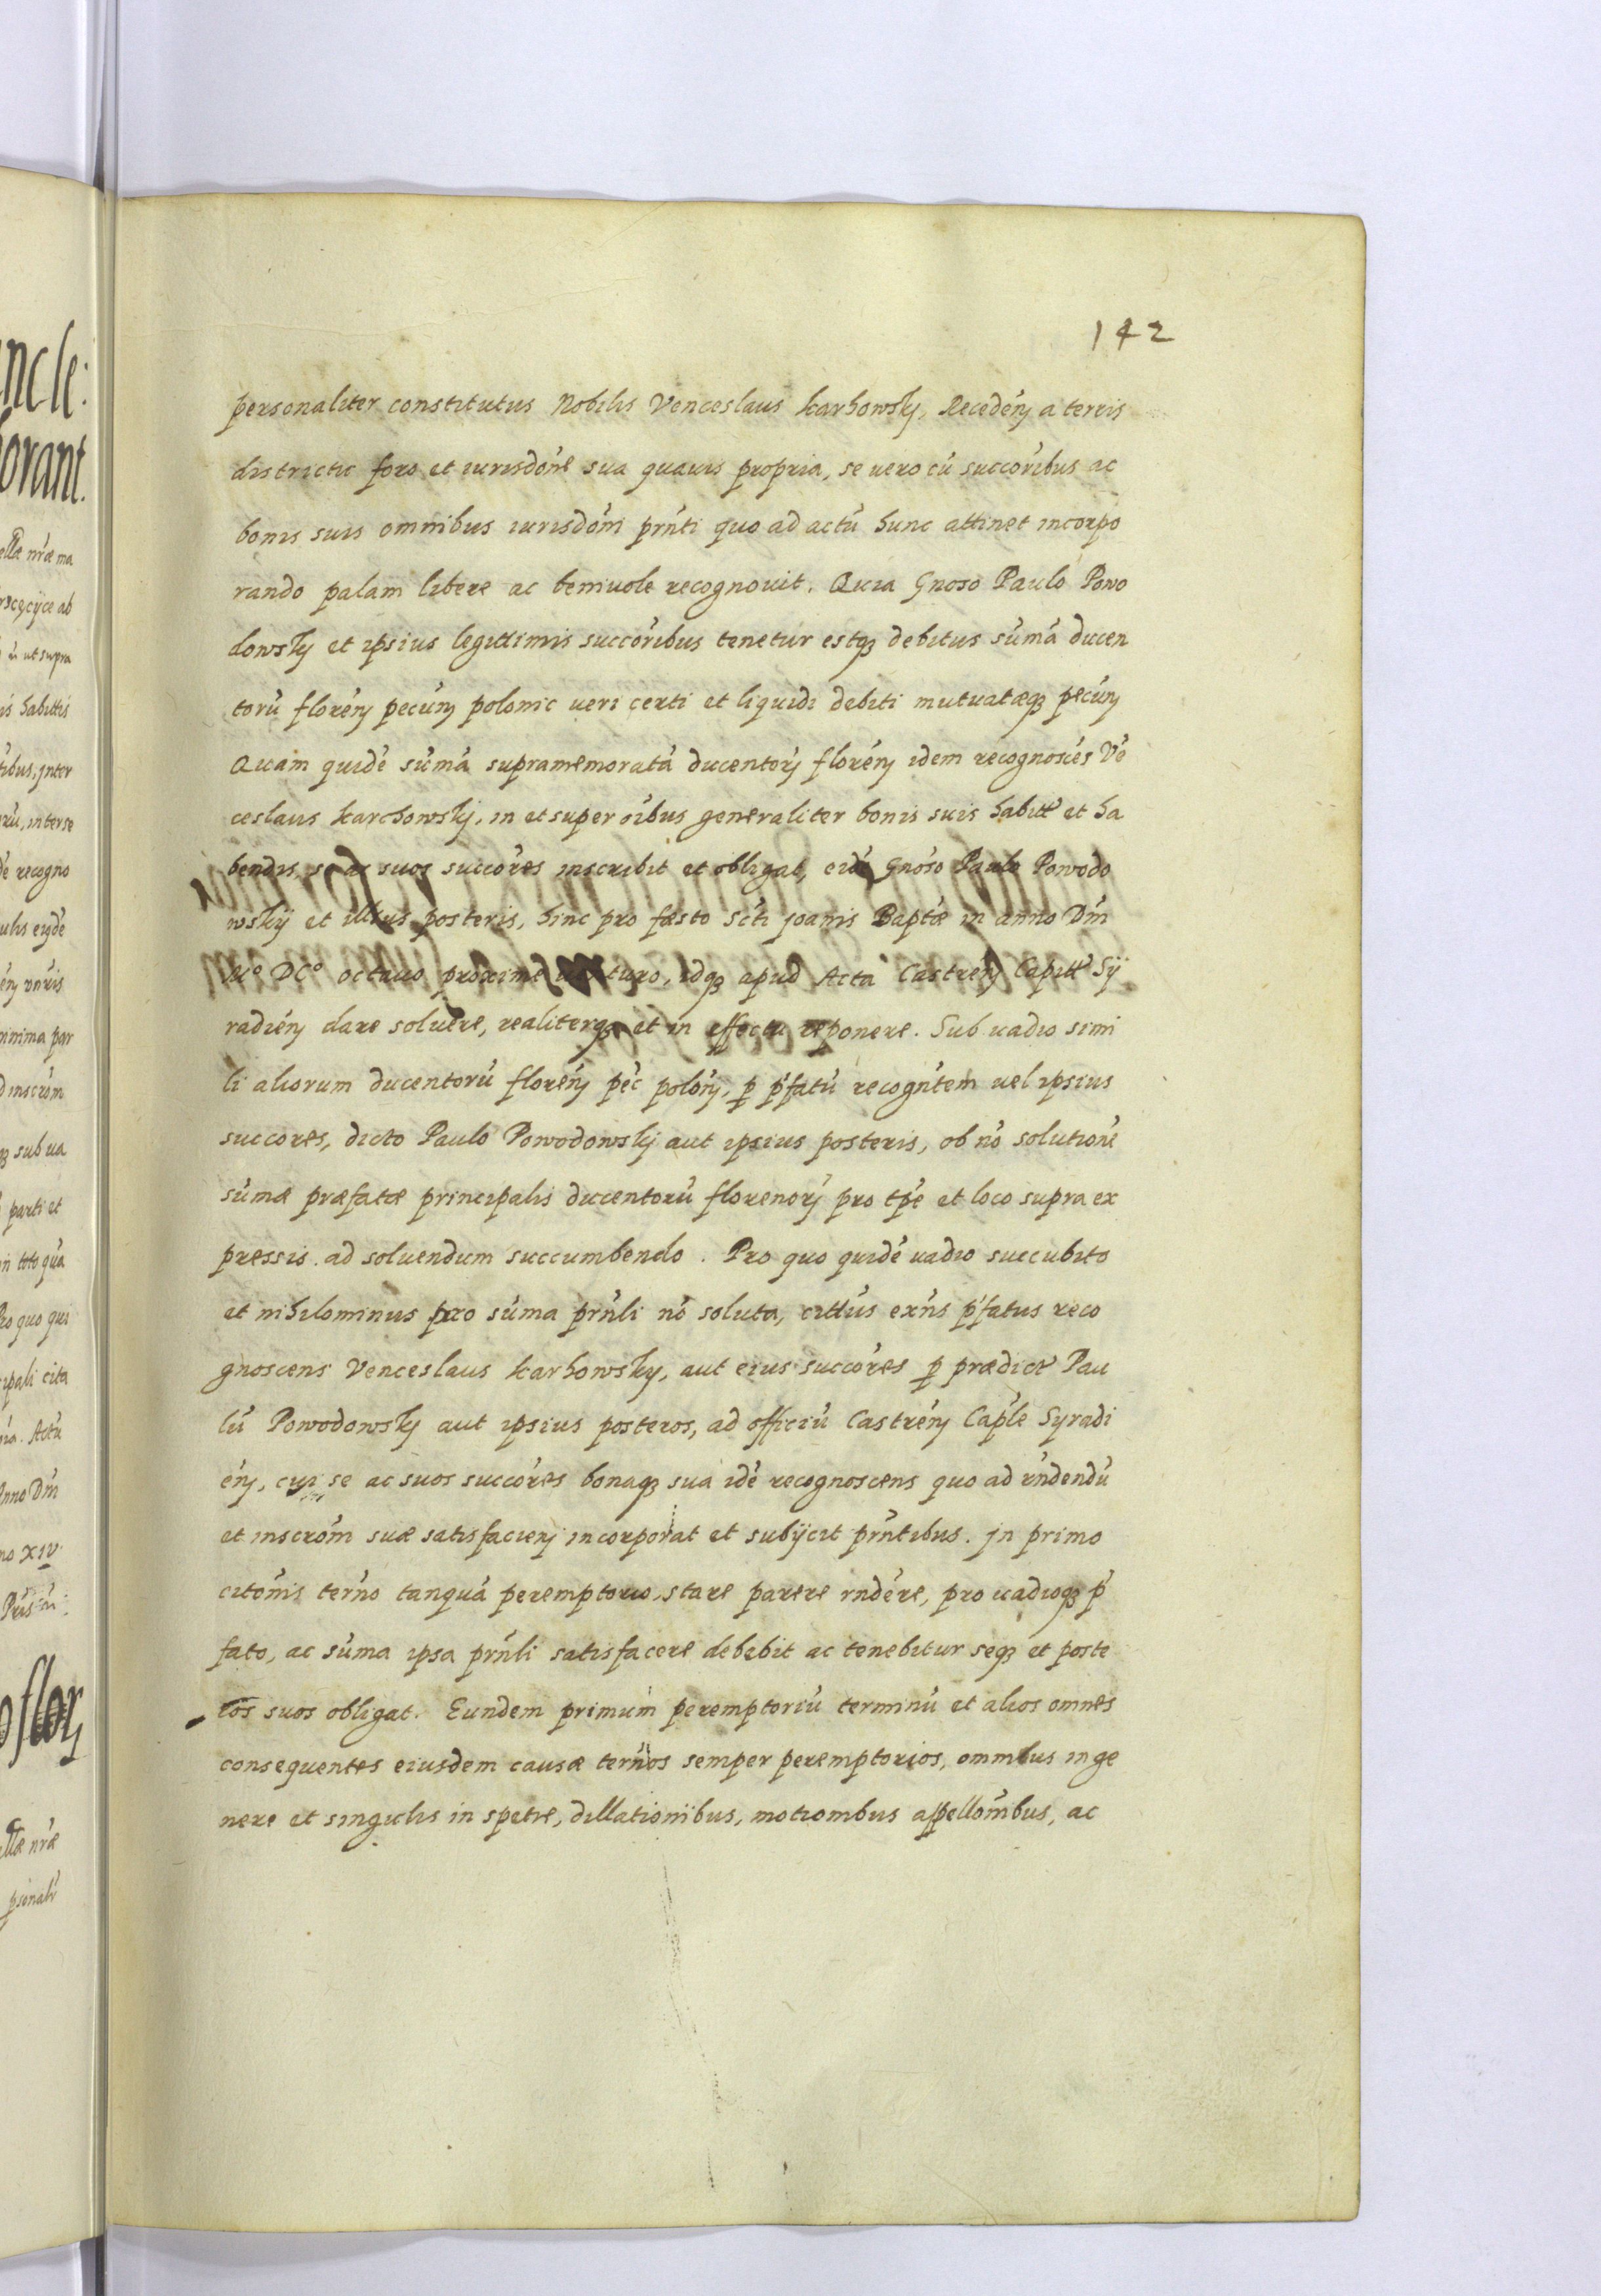 142
personaliter constitutus Nobilis Venceslaus karhowskÿ, Recedén̄ a terris
districtu foro et iurisdóne sua quauis propria, se uero cú succóribus ac
bonis suis omnibus iurisdóni pŕnti quo ad actú hunc attinet incorpo
rando palam libere ac beniuole recognouit. Quia Gnoso Paulo Powo
dowskÿ et ipsius legittimis succóribus tenetur estqȝ debitus súmá ducen
torú florén̄ pecún̄ polonic ueri certi et liquidi debiti mutuatæqȝ pecún̄
Quam quidé súmá supramemoratá ducentorꝝ florén̄ idem recognoscés Vé
ceslaus karchowskj, in et super óibus generaliter bonis suis habitt et ha
bendis, se ac suos succóres inscribit et obligat, eidé Gnoso Paulo Powodo
wskÿ et illius posteris, hinc pro fæsto Scti Joanis Baptæ in anno Dńi
Mº DCº octauo proxime uenturo, idqȝ apud Acta Castrén̄ Capitt Sÿ
radién̄ dare soluere, realiterqȝ et in effectu reponere. Sub uadio simi
li aliorum ducentorú florén̄ péc polón̄, ꝑ ṕfatú recogńtem uel ipsius
succores, dicto Paulo Powodowskj aut ipsius posteris, ob nó solutioné
súmæ præfatæ principalis ducentorú florenorꝝ pro tṕe et loco supra ex
pressis ad soluendum succumbendo. Pro quo quidé uadio succubito
et nihilominus pro súma pŕnli nó soluta, cittús exńs ṕfatus reco
gnoscens Venceslaus karhowsky, aut eius succóres ꝑ prædict Pau
lú Powodowskÿ aut ipsius posteros, ad officiú Castrén̄ Caṕle Syradi
én̄, cui se ac suos succóres bonaqȝ sua idé recognoscens quo ad ŕndendú
et inscróni suæ satisfacien̄ incorporat et subÿcit pŕntibus. Jn primo
citónis terńo tanquá peremptorio, stare parere rndére, pro uadioqȝ ṕ
fato, ac súma ipsa pŕnli satisfacere debebit ac tenebitur seqȝ et poste
ros suos obligat. Eundem primum peremptoriú terminú et alios omnes
consequentes eiusdem causæ terńos semper peremptorios, omnibus in ge
nere et singulis in spetie, dillationibus, motionibus appellónibus, ac